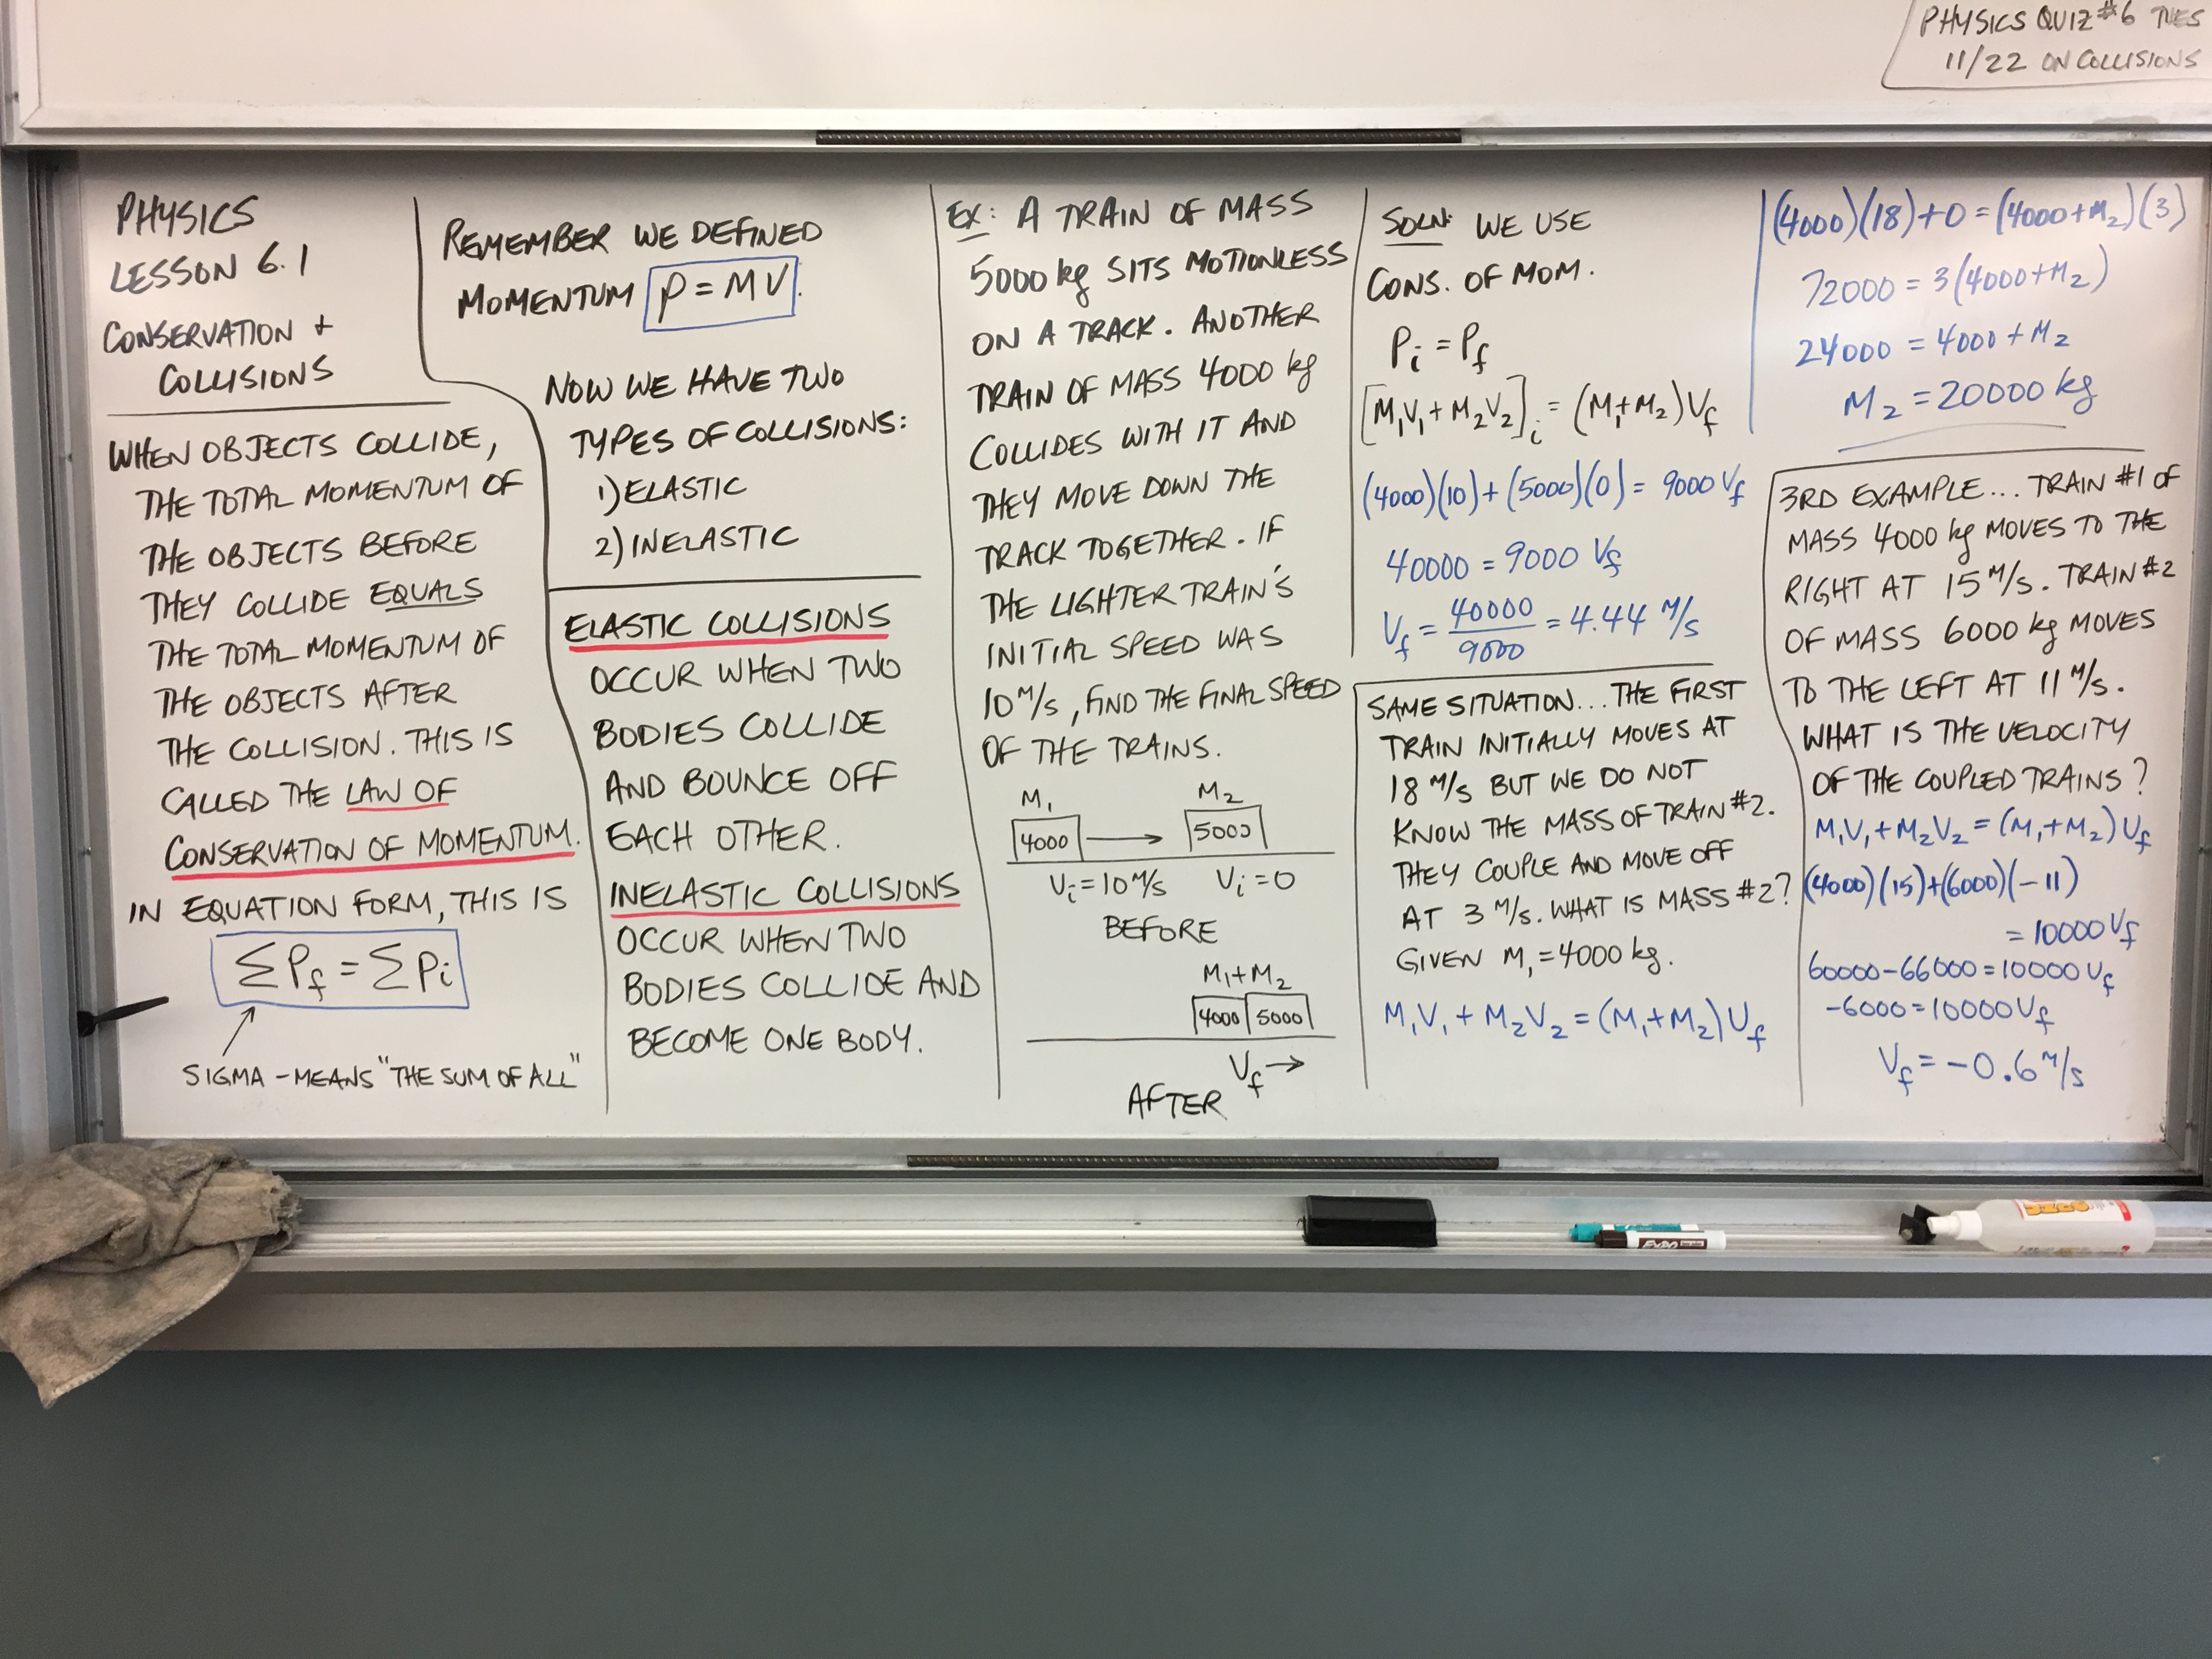 PHYSICS QUIZ #6 TUES
11/22 ON COLLISIONS
PHYSICS
LESSON 6.1
CONSERVATION +
COLLISIONS
WHEN OBJECTS COLLIDE,
THE TOTAL MOMENTUM OF
THE OBJECTS BEFORE
THEY COLLIDE EQUALS
THE TOTAL MOMENTUM OF
THE OBJECTS AFTER
THE COLLISION. THIS IS
CALLED THE LAW OF
CONSERVATION OF MOMENTUM.
IN EQUATION FORM, THIS IS
ΣP_f = ΣP_i
SIGMA - MEANS "THE SUM OF ALL"
REMEMBER WE DEFINED
MOMENTUM P = MV.
NOW WE HAVE TWO
TYPES OF COLLISIONS:
1) ELASTIC
2) INELASTIC
ELASTIC COLLISIONS
OCCUR WHEN TWO
BODIES COLLIDE
AND BOUNCE OFF
EACH OTHER.
INELASTIC COLLISIONS
OCCUR WHEN TWO
BODIES COLLIDE AND
BECOME ONE BODY.
EX: A TRAIN OF MASS
5000 kg SITS MOTIONLESS
ON A TRACK. ANOTHER
TRAIN OF MASS 4000 kg
COLLIDES WITH IT AND
THEY MOVE DOWN THE
TRACK TOGETHER. IF
THE LIGHTER TRAIN'S
INITIAL SPEED WAS
10 M/S, FIND THE FINAL SPEED
OF THE TRAINS.
M₁ M₂
4000 → 5000
V_i = 10 M/S V_i = 0
BEFORE
M₁+M₂
4000 5000
V_f →
AFTER
SOLN: WE USE
CONS. OF MOM.
P_i = P_f
[M₁V₁ + M₂V₂]_i = (M₁+M₂)V_f
(4000)(10) + (5000)(0) = 9000 V_f
40000 = 9000 V_f
V_f = 40000/9000 = 4.44 M/S
SAME SITUATION... THE FIRST
TRAIN INITIALLY MOVES AT
18 M/S BUT WE DO NOT
KNOW THE MASS OF TRAIN #2.
THEY COUPLE AND MOVE OFF
AT 3 M/S. WHAT IS MASS #2?
GIVEN M₁ = 4000 kg.
M₁V₁ + M₂V₂ = (M₁+M₂)V_f
(4000)(18)+0 = (4000+M₂)(3)
72000 = 3(4000+M₂)
24000 = 4000 + M₂
M₂ = 20000 kg
3RD EXAMPLE... TRAIN #1 OF
MASS 4000 kg MOVES TO THE
RIGHT AT 15 M/S. TRAIN #2
OF MASS 6000 kg MOVES
TO THE LEFT AT 11 M/S.
WHAT IS THE VELOCITY
OF THE COUPLED TRAINS?
M₁V₁ + M₂V₂ = (M₁+M₂)V_f
(4000)(15)+(6000)(-11)
= 10000 V_f
60000-66000 = 10000 V_f
-6000 = 10000 V_f
V_f = -0.6 M/S
EXPO